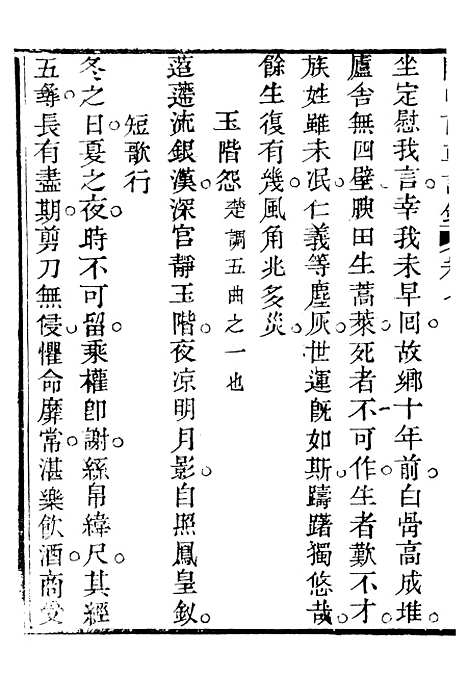 坐定慰我言幸我未早回故鄉十年前白骨高成堆
廬舍無四壁腴田生蒿萊死者不可作生者歎不才
族姓雖未泯仁義等塵灰世運旣如斯躊躇獨悠哉
餘生復有幾風角兆多災
玉階怨楚調五曲之一也
迢遞流銀漢深宮靜玉階夜凉明月影自照鳳皇釵
短歌行
冬之日夏之夜時不可留乘權卽謝絲帛緯尺其經
五彝長有盡期剪刀無侵懼命靡常湛樂飲酒商受